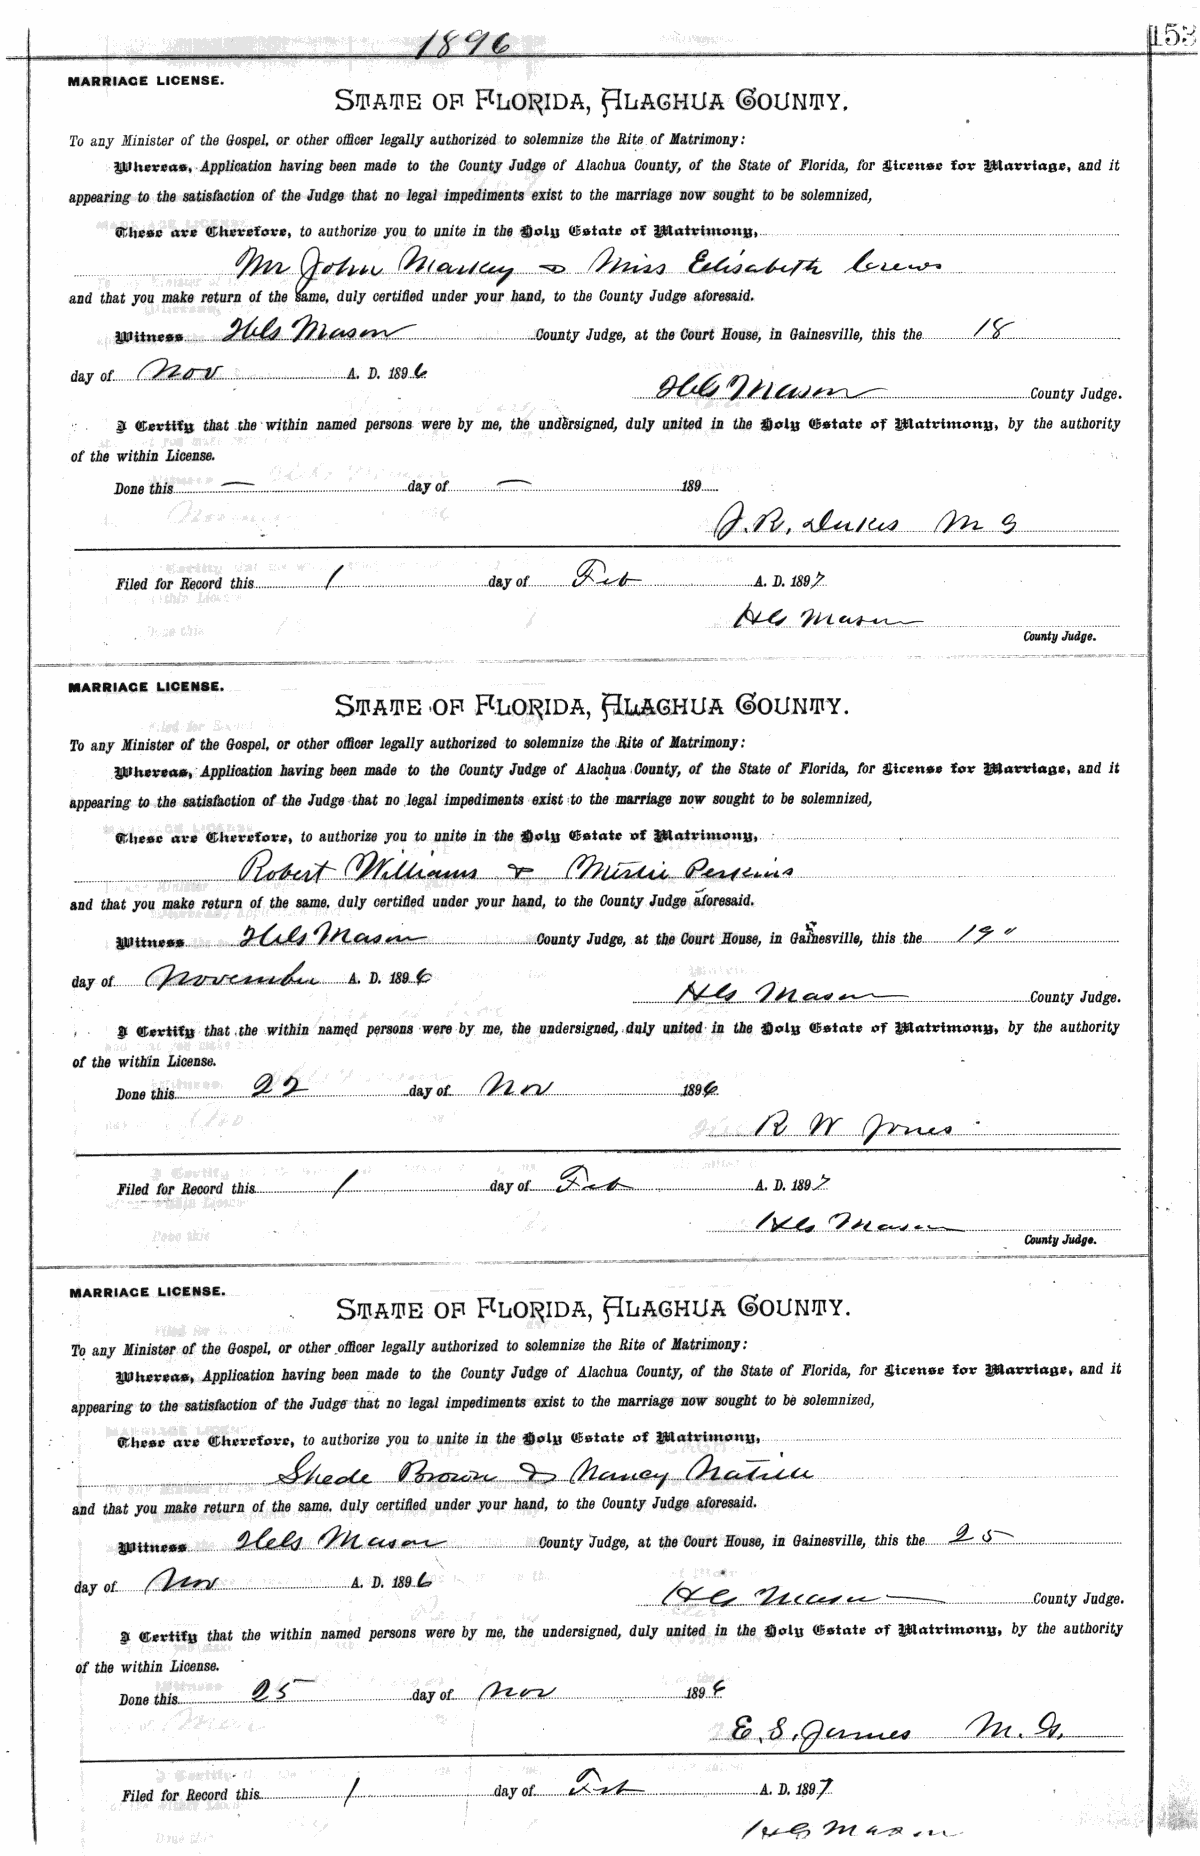 1896
153
MARRIAGE LICENSE.
STATE OF FLORIDA, ALACHUA COUNTY.
To any Minister of the Gospel, or other officer legally authorized to solemnize the Rite of Matrimony:
Whereas, Application having been made to the County Judge of Alachua County, of the State of Florida, for License for Marriage, and it
appearing to the satisfaction of the Judge that no legal impediments exist to the marriage now sought to be solemnized,
These are Therefore, to authorize you to unite in the Holy Estate of Matrimony,
Mr John Markey & Miss Elisabeth Crews
and that you make return of the same, duly certified under your hand, to the County Judge aforesaid.
Witness Mason County Judge, at the Court House, in Gainesville, this the 18
day of Nov A. D. 1896
Mason County Judge.
I Certify that the within named persons were by me, the undersigned, duly united in the Holy Estate of Matrimony, by the authority
of the within License.
Done this — day of — 189
J. R. Dukes M G
Filed for Record this 1 day of Feb A. D. 1897
Mason
County Judge.
MARRIAGE LICENSE.
STATE OF FLORIDA, ALACHUA COUNTY.
To any Minister of the Gospel, or other officer legally authorized to solemnize the Rite of Matrimony:
Whereas, Application having been made to the County Judge of Alachua County, of the State of Florida, for License for Marriage, and it
appearing to the satisfaction of the Judge that no legal impediments exist to the marriage now sought to be solemnized,
These are Therefore, to authorize you to unite in the Holy Estate of Matrimony,
Robert Williams & Perkins
and that you make return of the same, duly certified under your hand, to the County Judge aforesaid.
Witness Mason County Judge, at the Court House, in Gainesville, this the 19"
day of November A. D. 1896
Mason County Judge.
I Certify that the within named persons were by me, the undersigned, duly united in the Holy Estate of Matrimony, by the authority
of the within License.
Done this 22 day of Nov 1896
R W Jones
Filed for Record this 1 day of Feb A. D. 1897
Mason
County Judge.
MARRIAGE LICENSE.
STATE OF FLORIDA, ALACHUA COUNTY.
To any Minister of the Gospel, or other officer legally authorized to solemnize the Rite of Matrimony:
Whereas, Application having been made to the County Judge of Alachua County, of the State of Florida, for License for Marriage, and it
appearing to the satisfaction of the Judge that no legal impediments exist to the marriage now sought to be solemnized,
These are Therefore, to authorize you to unite in the Holy Estate of Matrimony,
Shede Brown & Nancy
and that you make return of the same, duly certified under your hand, to the County Judge aforesaid.
Witness Mason County Judge, at the Court House, in Gainesville, this the 25
day of Nov A. D. 1896
Mason County Judge.
I Certify that the within named persons were by me, the undersigned, duly united in the Holy Estate of Matrimony, by the authority
of the within License.
Done this 25 day of Nov 1896
E. S. James M. G.
Filed for Record this 1 day of Feb A. D. 1897
Mason